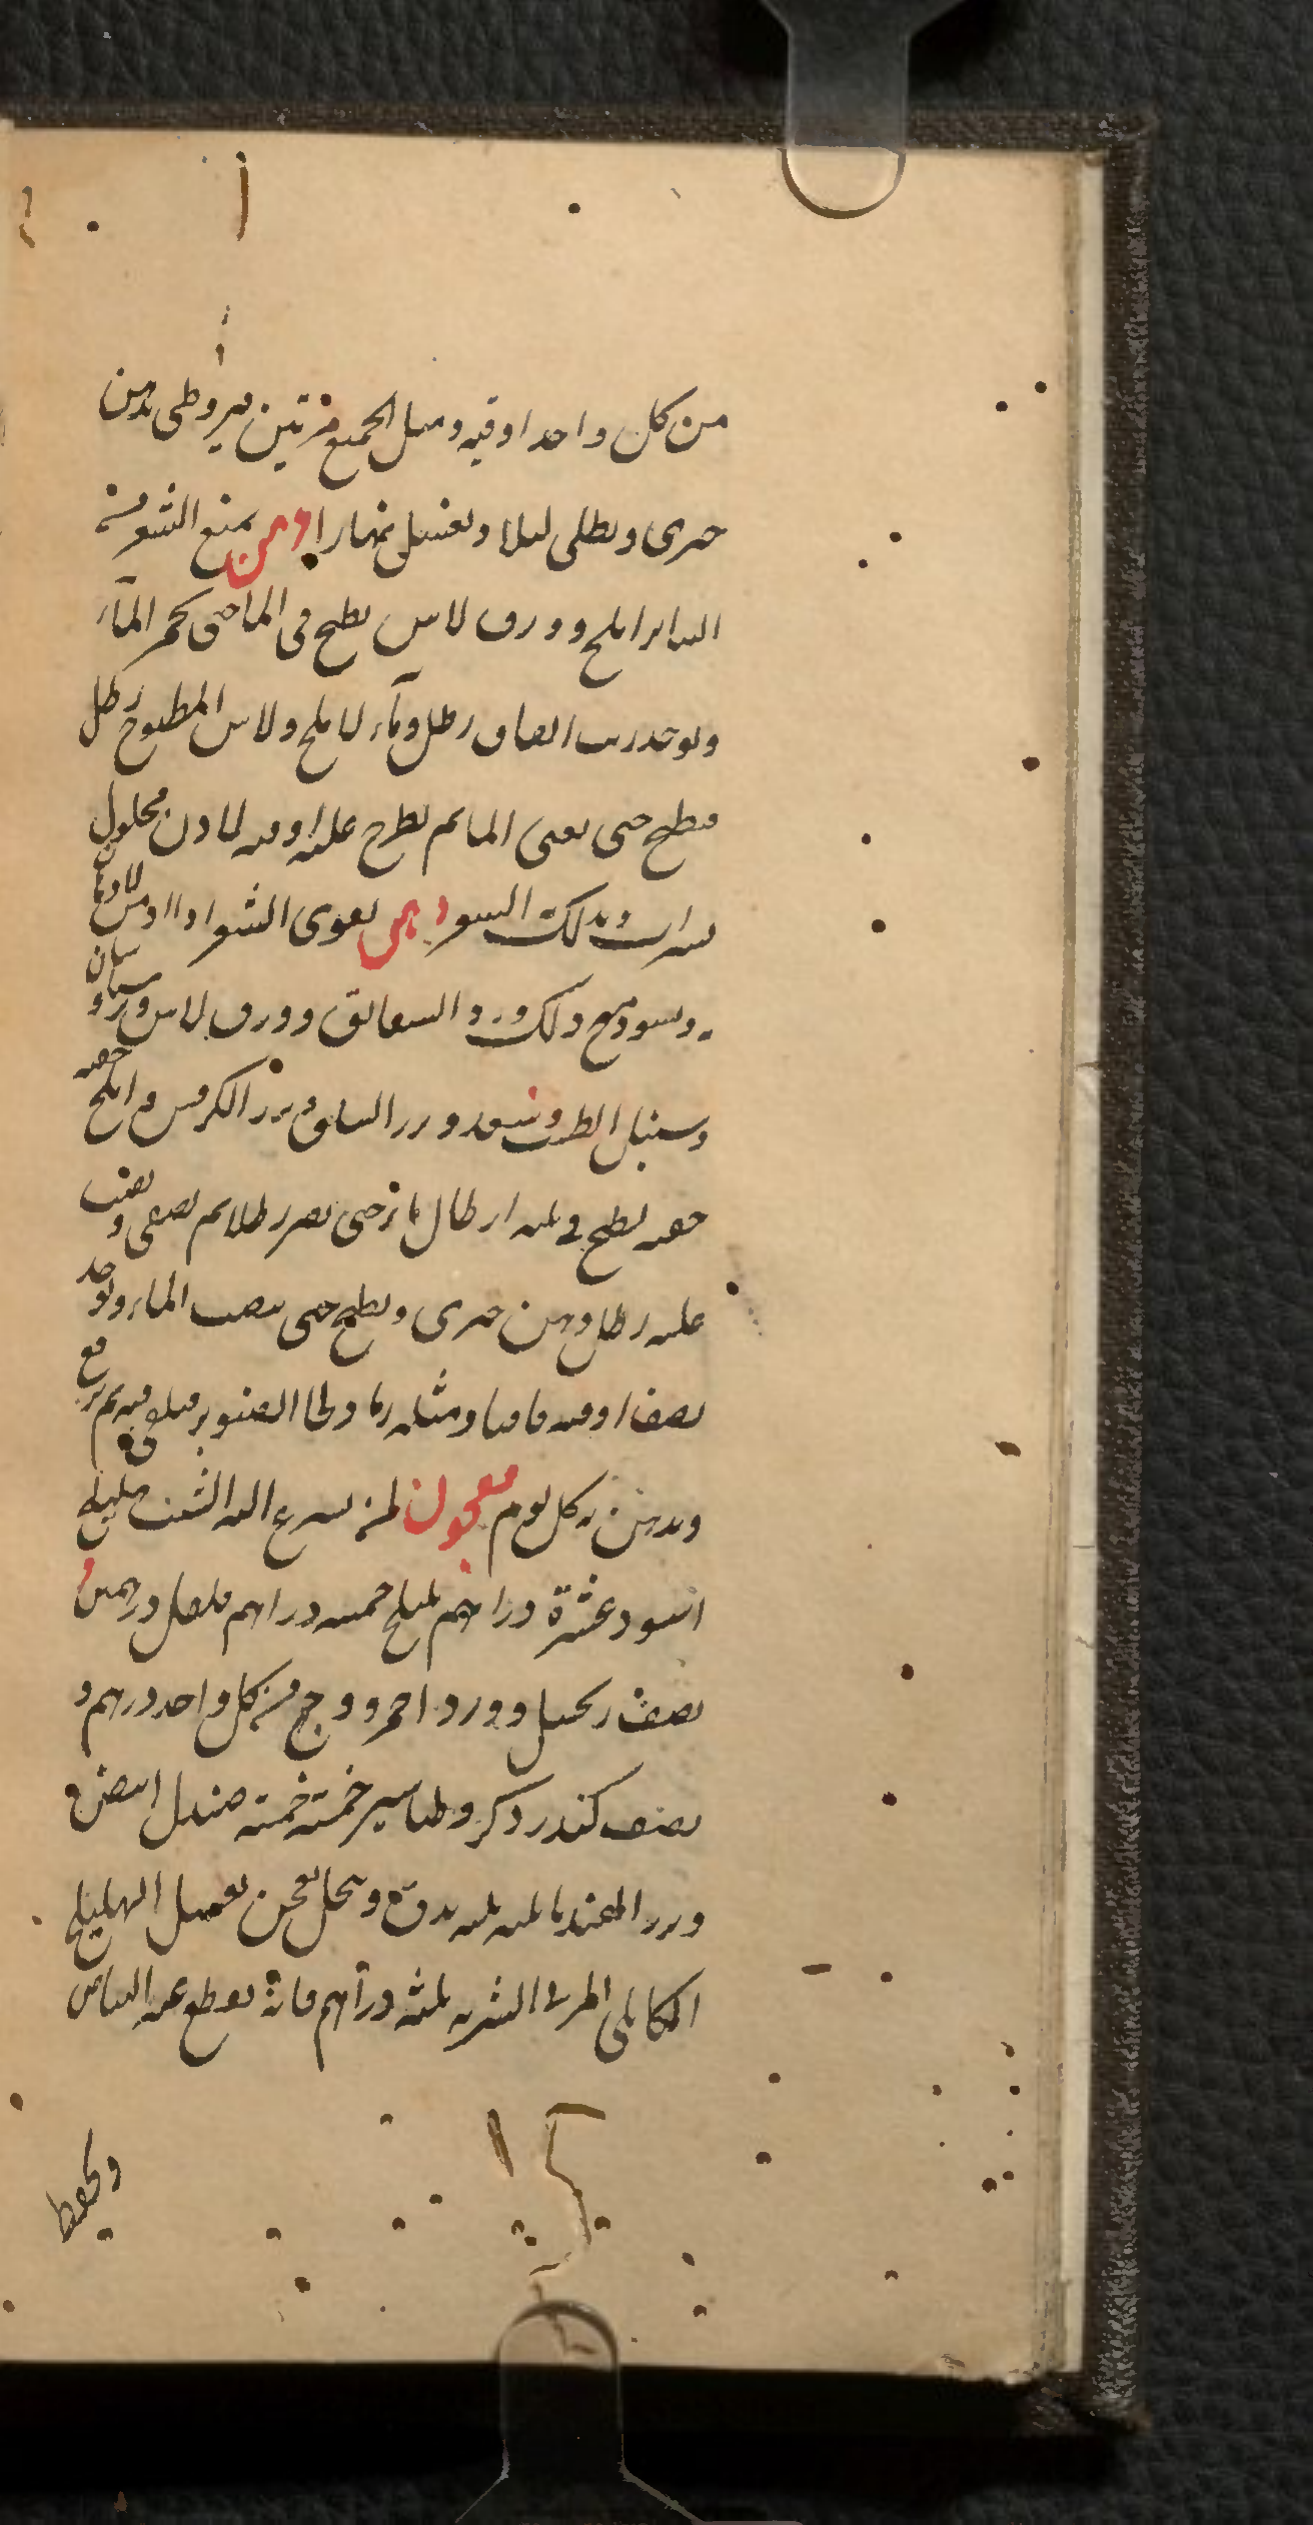 من كل واحد اوقيه ومثل الجميع مرتين قيروطى بدهن
خيرى ويطلى ليلا ويغسل نهارا دهن يمنع الشعر من
املج وورق لاس يطبخ فى الما حتى يحمر المآء
ويوخذ زيت انفاق رطل ومآء لاملج ولاس المطبوخ رطل
فيطبخ حتى يفنى الما ثم يطرح عليه اوقيه لادن محلول
بشراب ويدلك الشعر دهن يقوى الشعر اذا ادمن
ويسود يوخذ ذلك ورد الشقائق وورق لاس
وسنبل الطيب وسعد وبزر السلق وبزر الكرفس واملج
حفنه يطبخ فى ثلثه ارطال ما حتى يصير رطلا ثم يصفى ويصب
عليه رطل دهن خيرى ويطبخ حتى ينضب الماء ويوخذ
نصف اوقيه قاقيا ومثله رماد لحا الصنوبر فيلقى فيه ثم يرفع
ويدهن به كل يوم معجون لمن يسرع اليه الشيب هليلج
اسود عشرة دراهم بليلج خمسه دراهم فلفل درهمين
نصف زنجبيل وورد احمر ووج من كل واحد درهم و
نصف كندر ذكر وطباشير خمسة خمسة صندل ابيض و
وبزر الهندبا ثلثه ثلثه يدق وينخل يعجن بعسل الهليلج
الكابلى المربى الشربه ثلثة دراهم فانه يقطع عنه البياض
ويحفظ